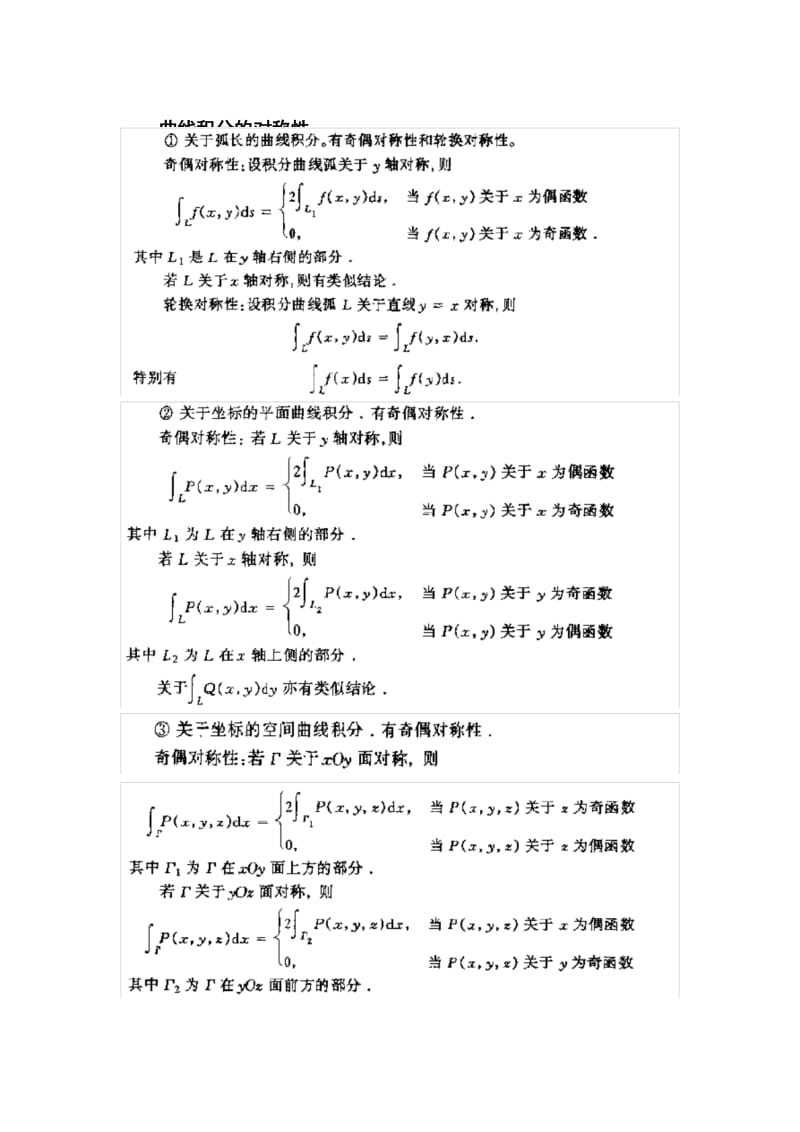 曲线积分的对称性
① 关于弧长的曲线积分。有奇偶对称性和轮换对称性。
奇偶对称性:设积分曲线弧关于 y 轴对称,则
∫_L f(x,y)ds = { 2∫_{L₁} f(x,y)ds, 当 f(x,y)关于 x 为偶函数
0, 当 f(x,y)关于 x 为奇函数.
其中 L₁ 是 L 在 y 轴右侧的部分.
若 L 关于 x 轴对称,则有类似结论.
轮换对称性:设积分曲线弧 L 关于直线 y = x 对称,则
∫_L f(x,y)ds = ∫_L f(y,x)ds.
特别有 ∫_L f(x)ds = ∫_L f(y)ds.
② 关于坐标的平面曲线积分.有奇偶对称性.
奇偶对称性:若 L 关于 y 轴对称,则
∫_L P(x,y)dx = { 2∫_{L₁} P(x,y)dx, 当 P(x,y)关于 x 为偶函数
0, 当 P(x,y)关于 x 为奇函数
其中 L₁ 为 L 在 y 轴右侧的部分.
若 L 关于 x 轴对称,则
∫_L P(x,y)dx = { 2∫_{L₂} P(x,y)dx, 当 P(x,y)关于 y 为奇函数
0, 当 P(x,y)关于 y 为偶函数
其中 L₂ 为 L 在 x 轴上侧的部分.
关于∫_L Q(x,y)dy 亦有类似结论.
③ 关于坐标的空间曲线积分.有奇偶对称性.
奇偶对称性:若 Γ 关于 xOy 面对称,则
∫_Γ P(x,y,z)dx = { 2∫_{Γ₁} P(x,y,z)dx, 当 P(x,y,z)关于 z 为奇函数
0, 当 P(x,y,z)关于 z 为偶函数
其中 Γ₁ 为 Γ 在 xOy 面上方的部分.
若 Γ 关于 yOz 面对称,则
∫_Γ P(x,y,z)dx = { 2∫_{Γ₂} P(x,y,z)dx, 当 P(x,y,z)关于 x 为偶函数
0, 当 P(x,y,z)关于 y 为奇函数
其中 Γ₂ 为 Γ 在 yOz 面前方的部分.